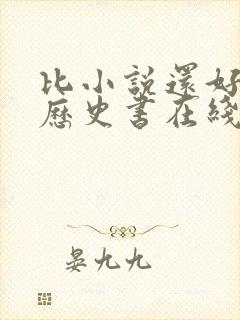 比小說還好
歷史書在綫
晏九九